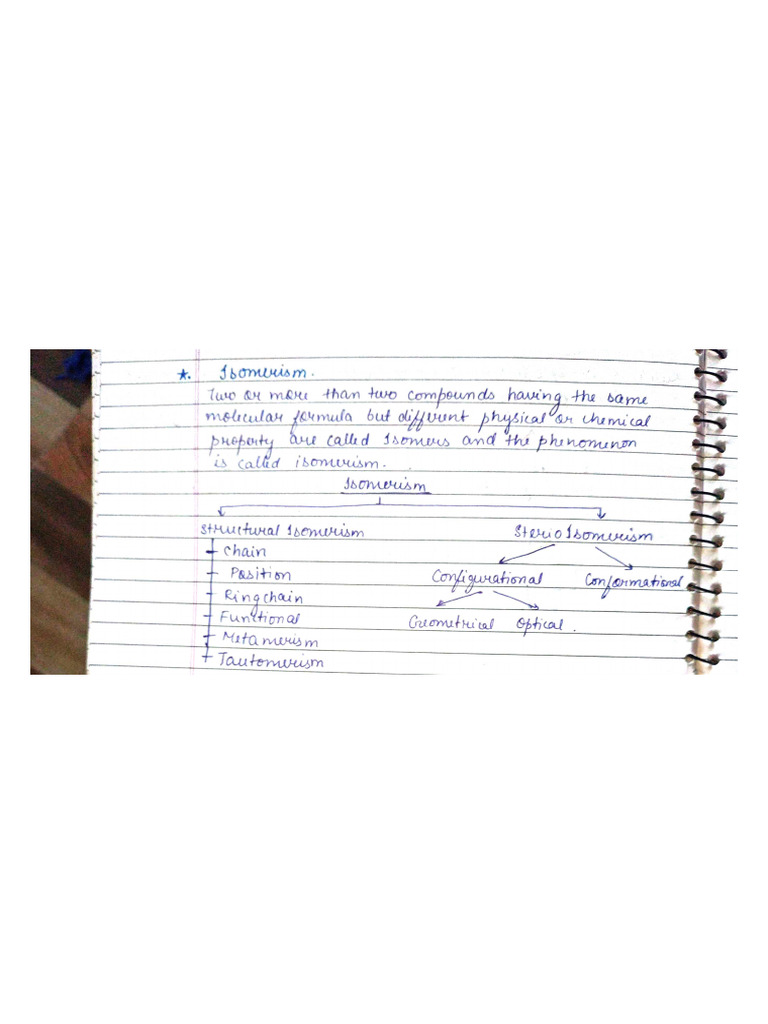 *. Isomerism.
Two or more than two compounds having the same
molecular formula but different physical or chemical
property are called Isomers and the phenomenon
is called isomerism.
Isomerism
Structural Isomerism Sterio Isomerism
Chain
Position Configurational Conformational
Ringchain
Functional Geometrical Optical.
Metamerism
Tautomerism